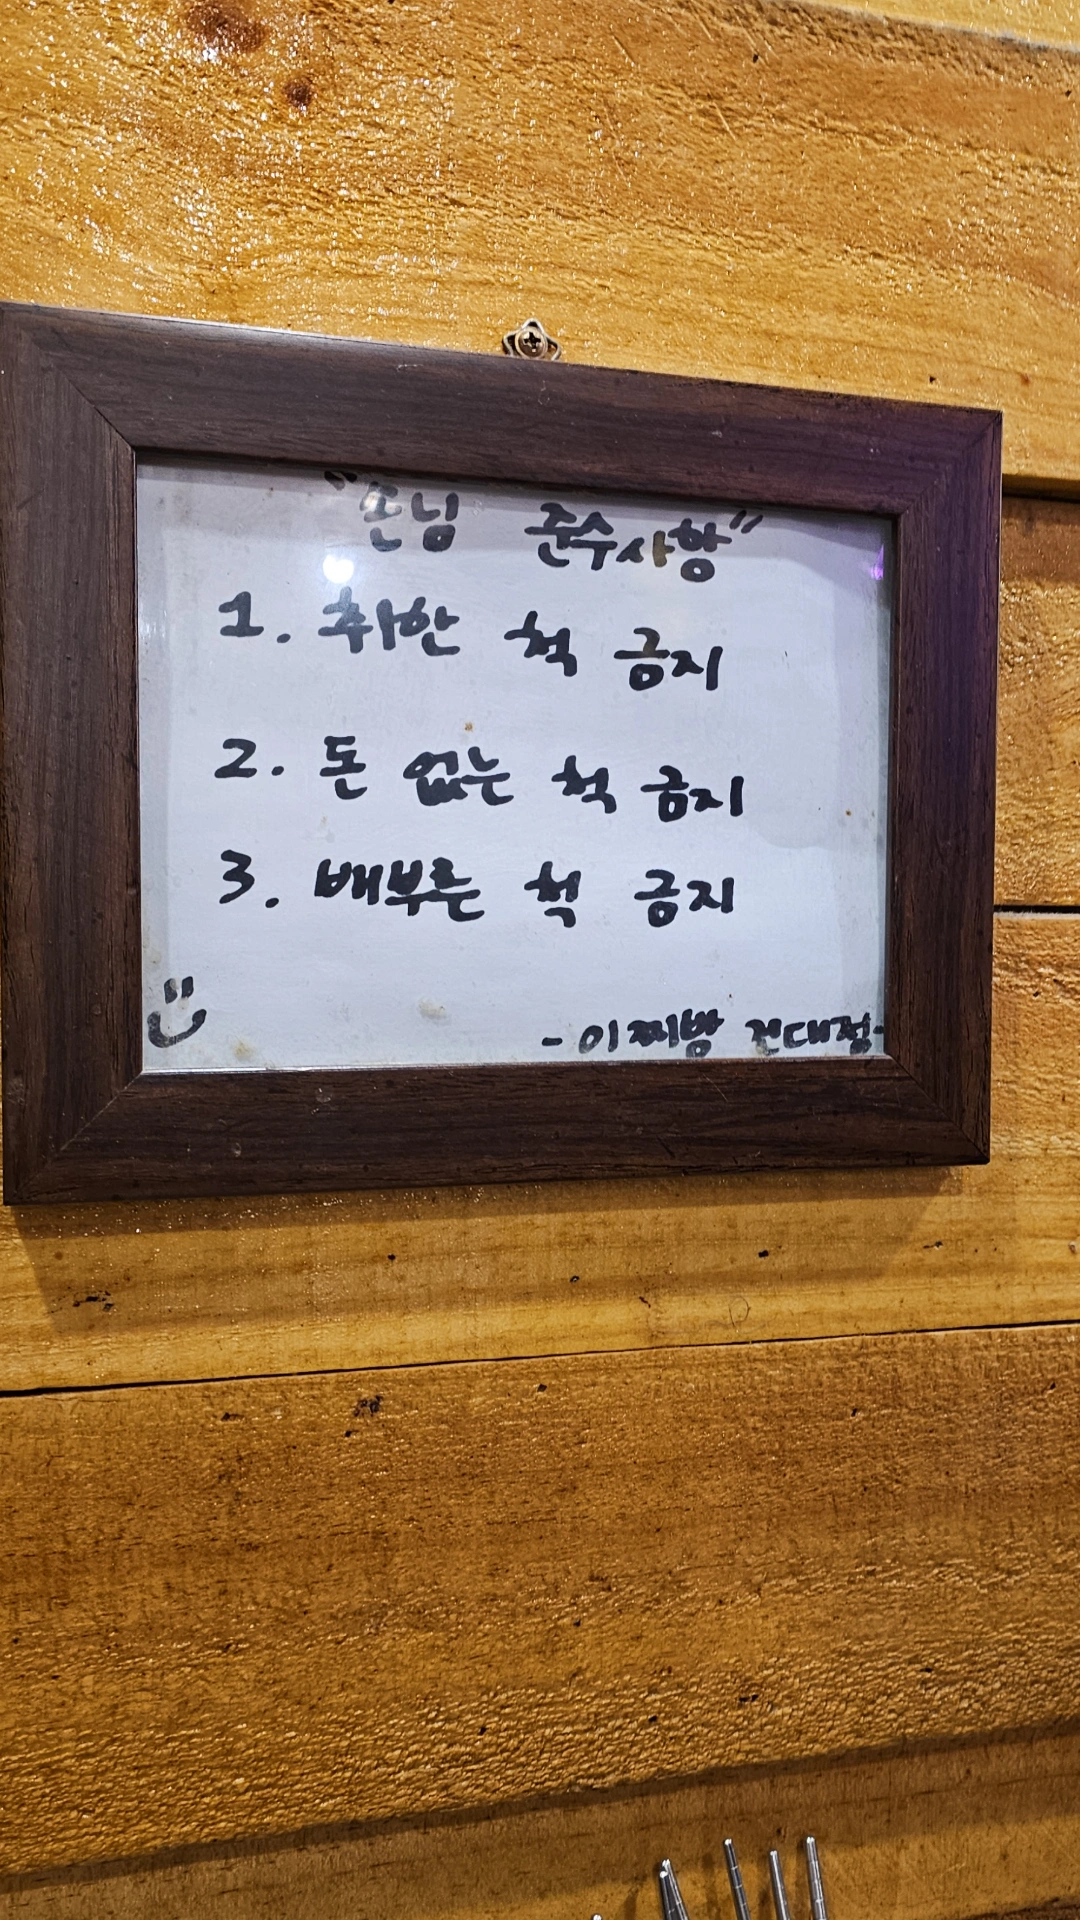 "손님 준수사항"
1. 취한 척 금지
2. 돈 없는 척 금지
3. 배부른 척 금지
- 이찌방 건대점-